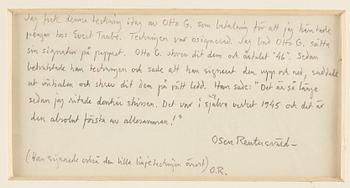 Jag fick denna teckning idag av Otto G. som betalning för att jag hämtade
pengar hos Evert Taube. Teckningen var osignerad. Jag bad Otto G. sätta
sin signatur på pappret. Otto G. skrev dit dem och årtalet "46". Sedan
betraktade han teckningen och sade att han signerat den upp och ned, suddade
ut initialen och skrev dit dem på rätt ledd. Han sade: "Det är så länge
sedan jag ritade den här skissen. Det var i själva verket 1945 och det är
den absolut första av allesammans!"
Oscar Reutersvärd
(Han signerade också den lilla linjeteckningen överst)
O.R.